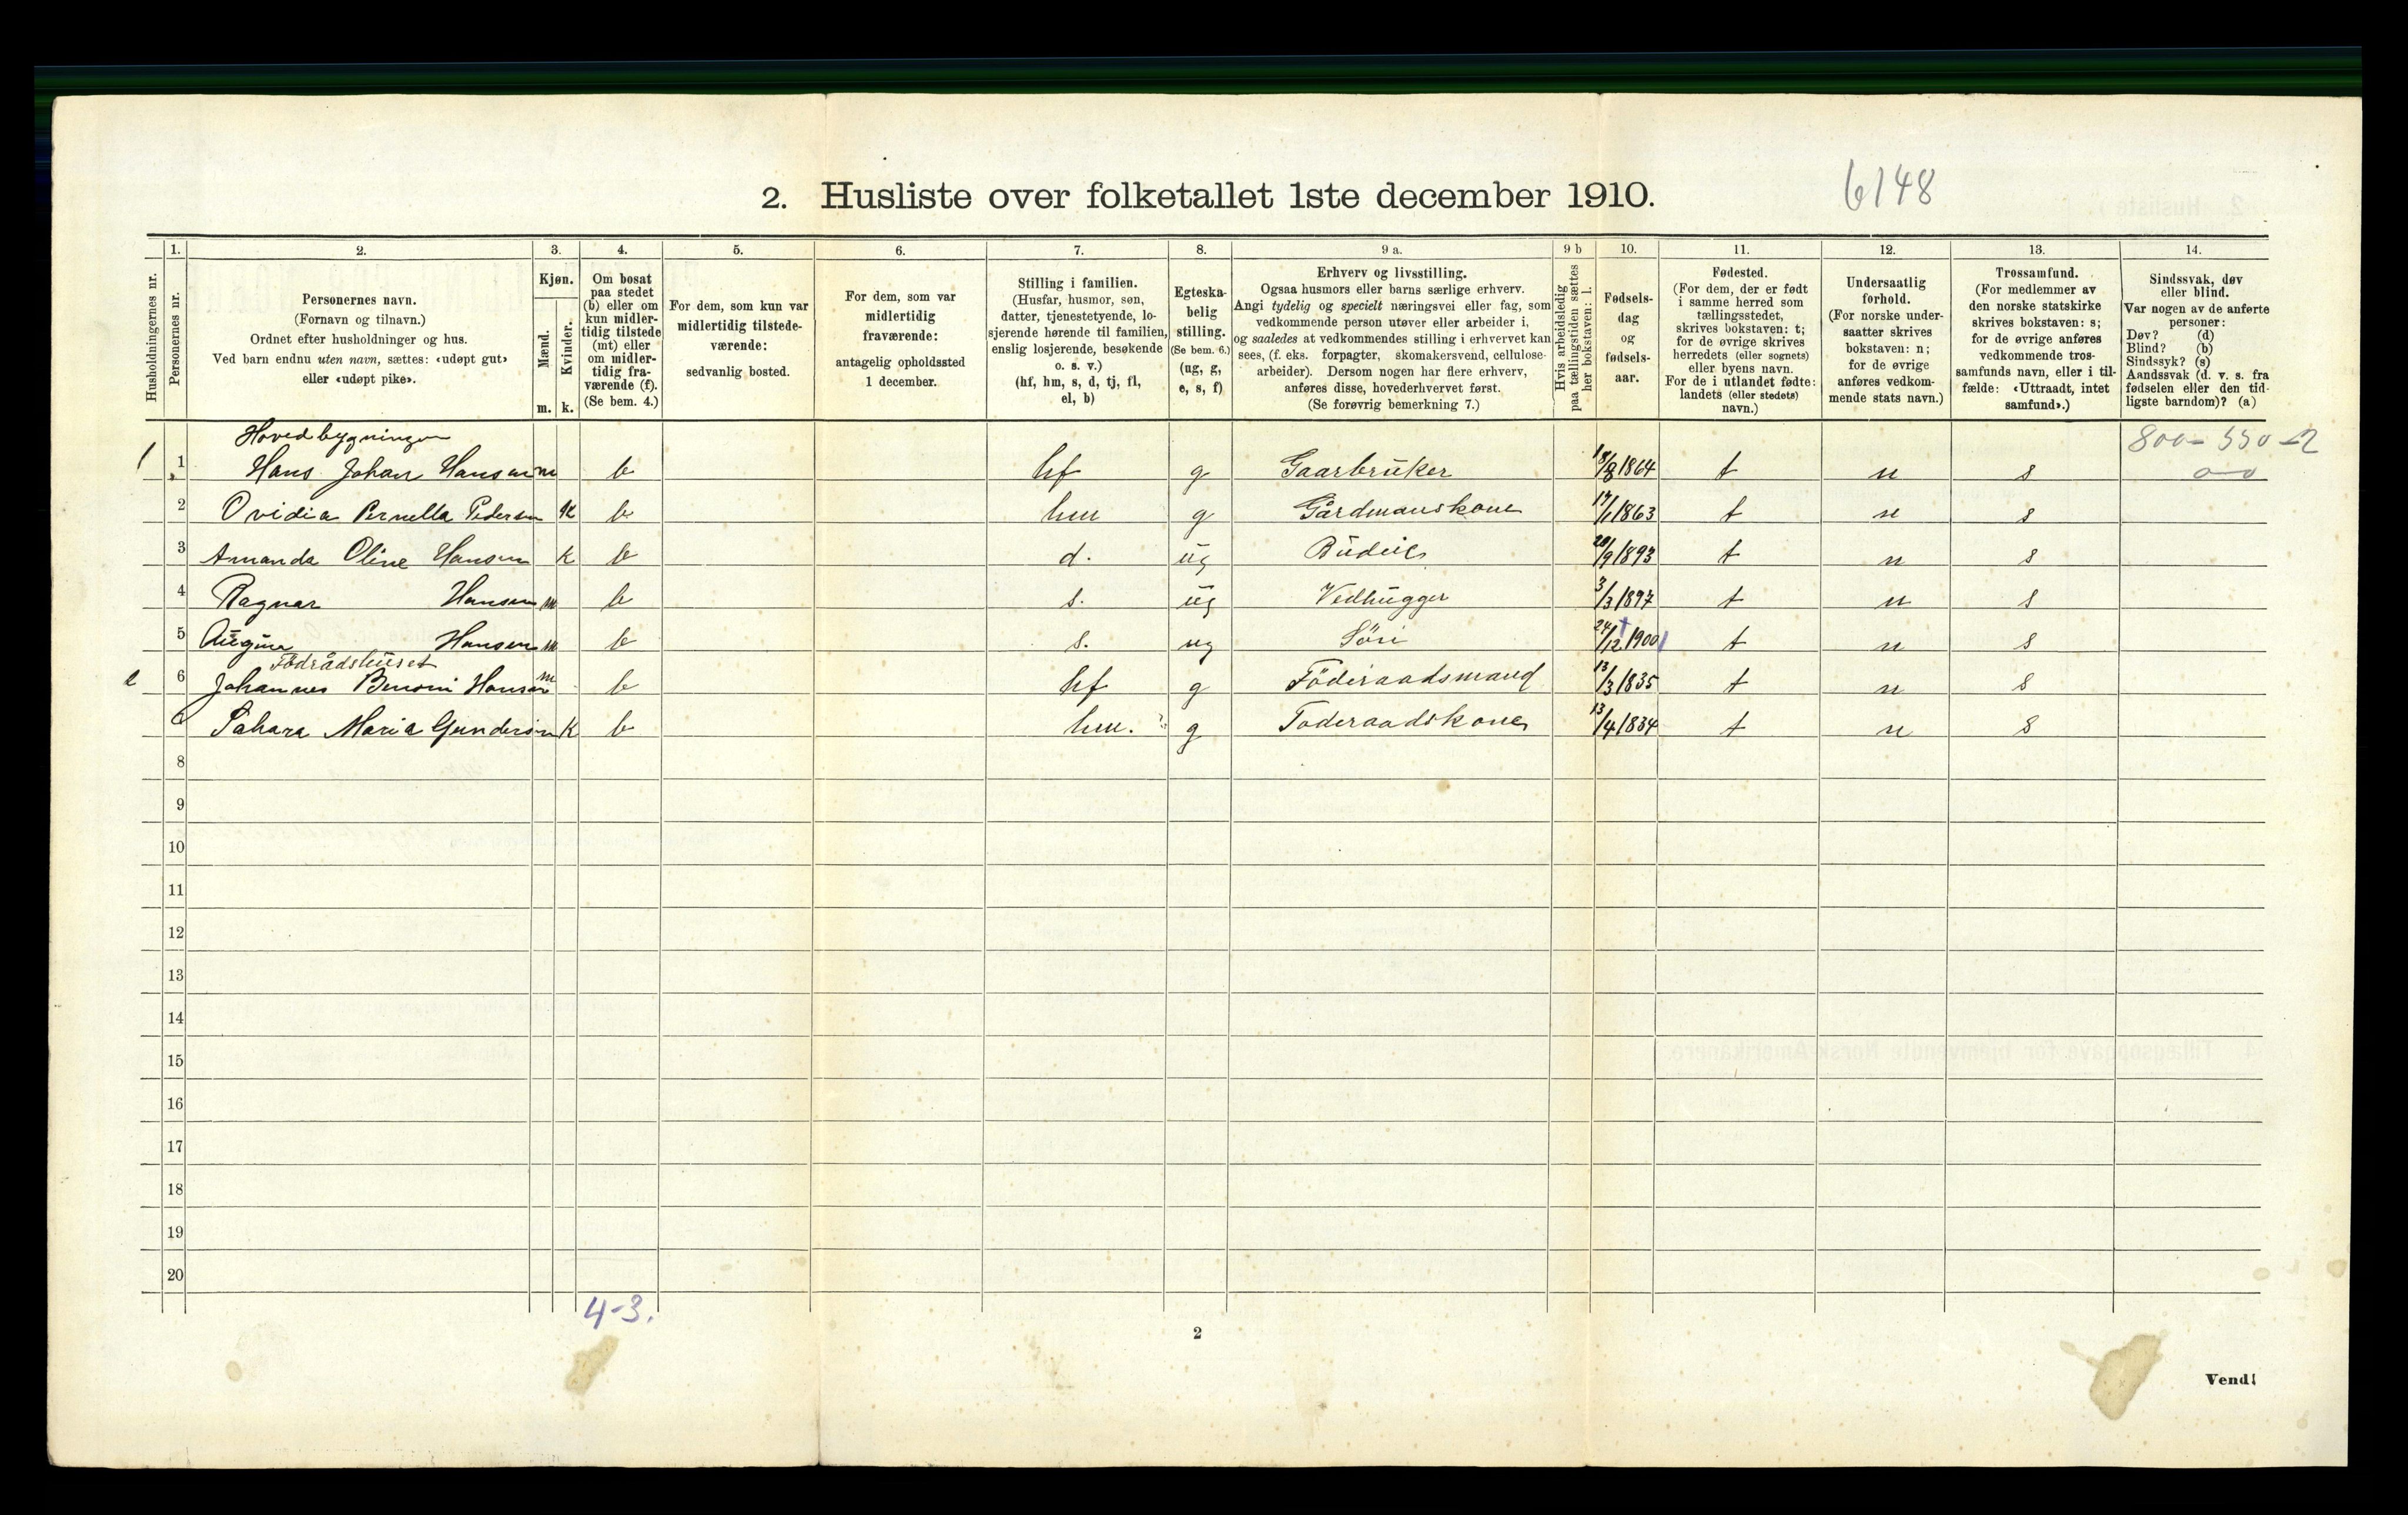 2. Husliste over folketallet 1ste december 1910.
6148
Husholdningernes nr.
1.
Personernes nr.
2.
Personernes navn.
(Fornavn og tilnavn.)
Ordnet efter husholdninger og hus.
Ved barn endnu uten navn, sættes: «udøpt gut»
eller «udøpt pike».
3.
Kjøn.
Mænd.
Kvinder.
m. k.
4.
Om bosat
paa stedet
(b) eller om
kun midler-
tidig tilstede
(mt) eller
om midler-
tidig fra-
værende (f).
(Se bem. 4.)
5.
For dem, som kun var
midlertidig tilstede-
værende:
sedvanlig bosted.
6.
For dem, som var
midlertidig
fraværende:
antagelig opholdssted
1 december.
7.
Stilling i familien.
(Husfar, husmor, søn,
datter, tjenestetyende, lo-
sjerende hørende til familien,
enslig losjerende, besøkende
o. s. v.)
(hf, hm, s, d, tj, fl,
el, b)
8.
Egteska-
belig
stilling.
(Se bem. 6.)
(ug, g,
e, s, f)
9 a.
Erhverv og livsstilling.
Ogsaa husmors eller barns særlige erhverv.
Angi tydelig og specielt næringsvei eller fag, som
vedkommende person utøver eller arbeider i,
og saaledes at vedkommendes stilling i erhvervet kan
sees, (f. eks. forpagter, skomakersvend, cellulose-
arbeider). Dersom nogen har flere erhverv,
anføres disse, hovederhvervet først.
(Se forøvrig bemerkning 7.)
9 b
Hvis arbeidsledig
paa tællingstiden sættes
her bokstaven: l.
10.
Fødsels-
dag
og
fødsels-
aar.
11.
Fødested.
(For dem, der er født
i samme herred som
tællingsstedet,
skrives bokstaven: t;
for de øvrige skrives
herredets (eller sognets)
eller byens navn.
For de i utlandet fødte:
landets (eller stedets)
navn.)
12.
Undersaatlig
forhold.
(For norske under-
saatter skrives
bokstaven: n;
for de øvrige
anføres vedkom-
mende stats navn.)
13.
Trossamfund.
(For medlemmer av
den norske statskirke
skrives bokstaven: s;
for de øvrige anføres
vedkommende tros-
samfunds navn, eller i til-
fælde: «Uttraadt, intet
samfund».)
14.
Sindssvak, døv
eller blind.
Var nogen av de anførte
personer:
Døv? (d)
Blind? (b)
Sindssyk? (s)
Aandssvak (d. v. s. fra
fødselen eller den tid-
ligste barndom)? (a)
Hovedbygningen
800 - 550 - 2
0 - 0
1 1 Hans Johan Hansen m b hf g Gaarbrüker 18/8 1864 t n s
2 Ovidia Pernella Pedersen K b hm g Gårdmanskone 17/1 1863 t n s
3 Amanda Oline Hansen K b d. ug Büdeie 20/9 1893 t n s
4 Ragnar Hansen m b s. ug Vedhügger 3/3 1897 t n s
5 Hansen m b s. ug Sön 24/12 1900 t n s
Födrådshüset
2 6 Johannes Benoni Hansen m b hf g Föderaadsmand 13/3 1835 t n s
Sahara Maria Gundersen K b hm. g Foderaadskone 13/4 1834 t n s
8
9
10
11
12
13
14
15
16
17
18
19
20
4-3.
2
Vend!